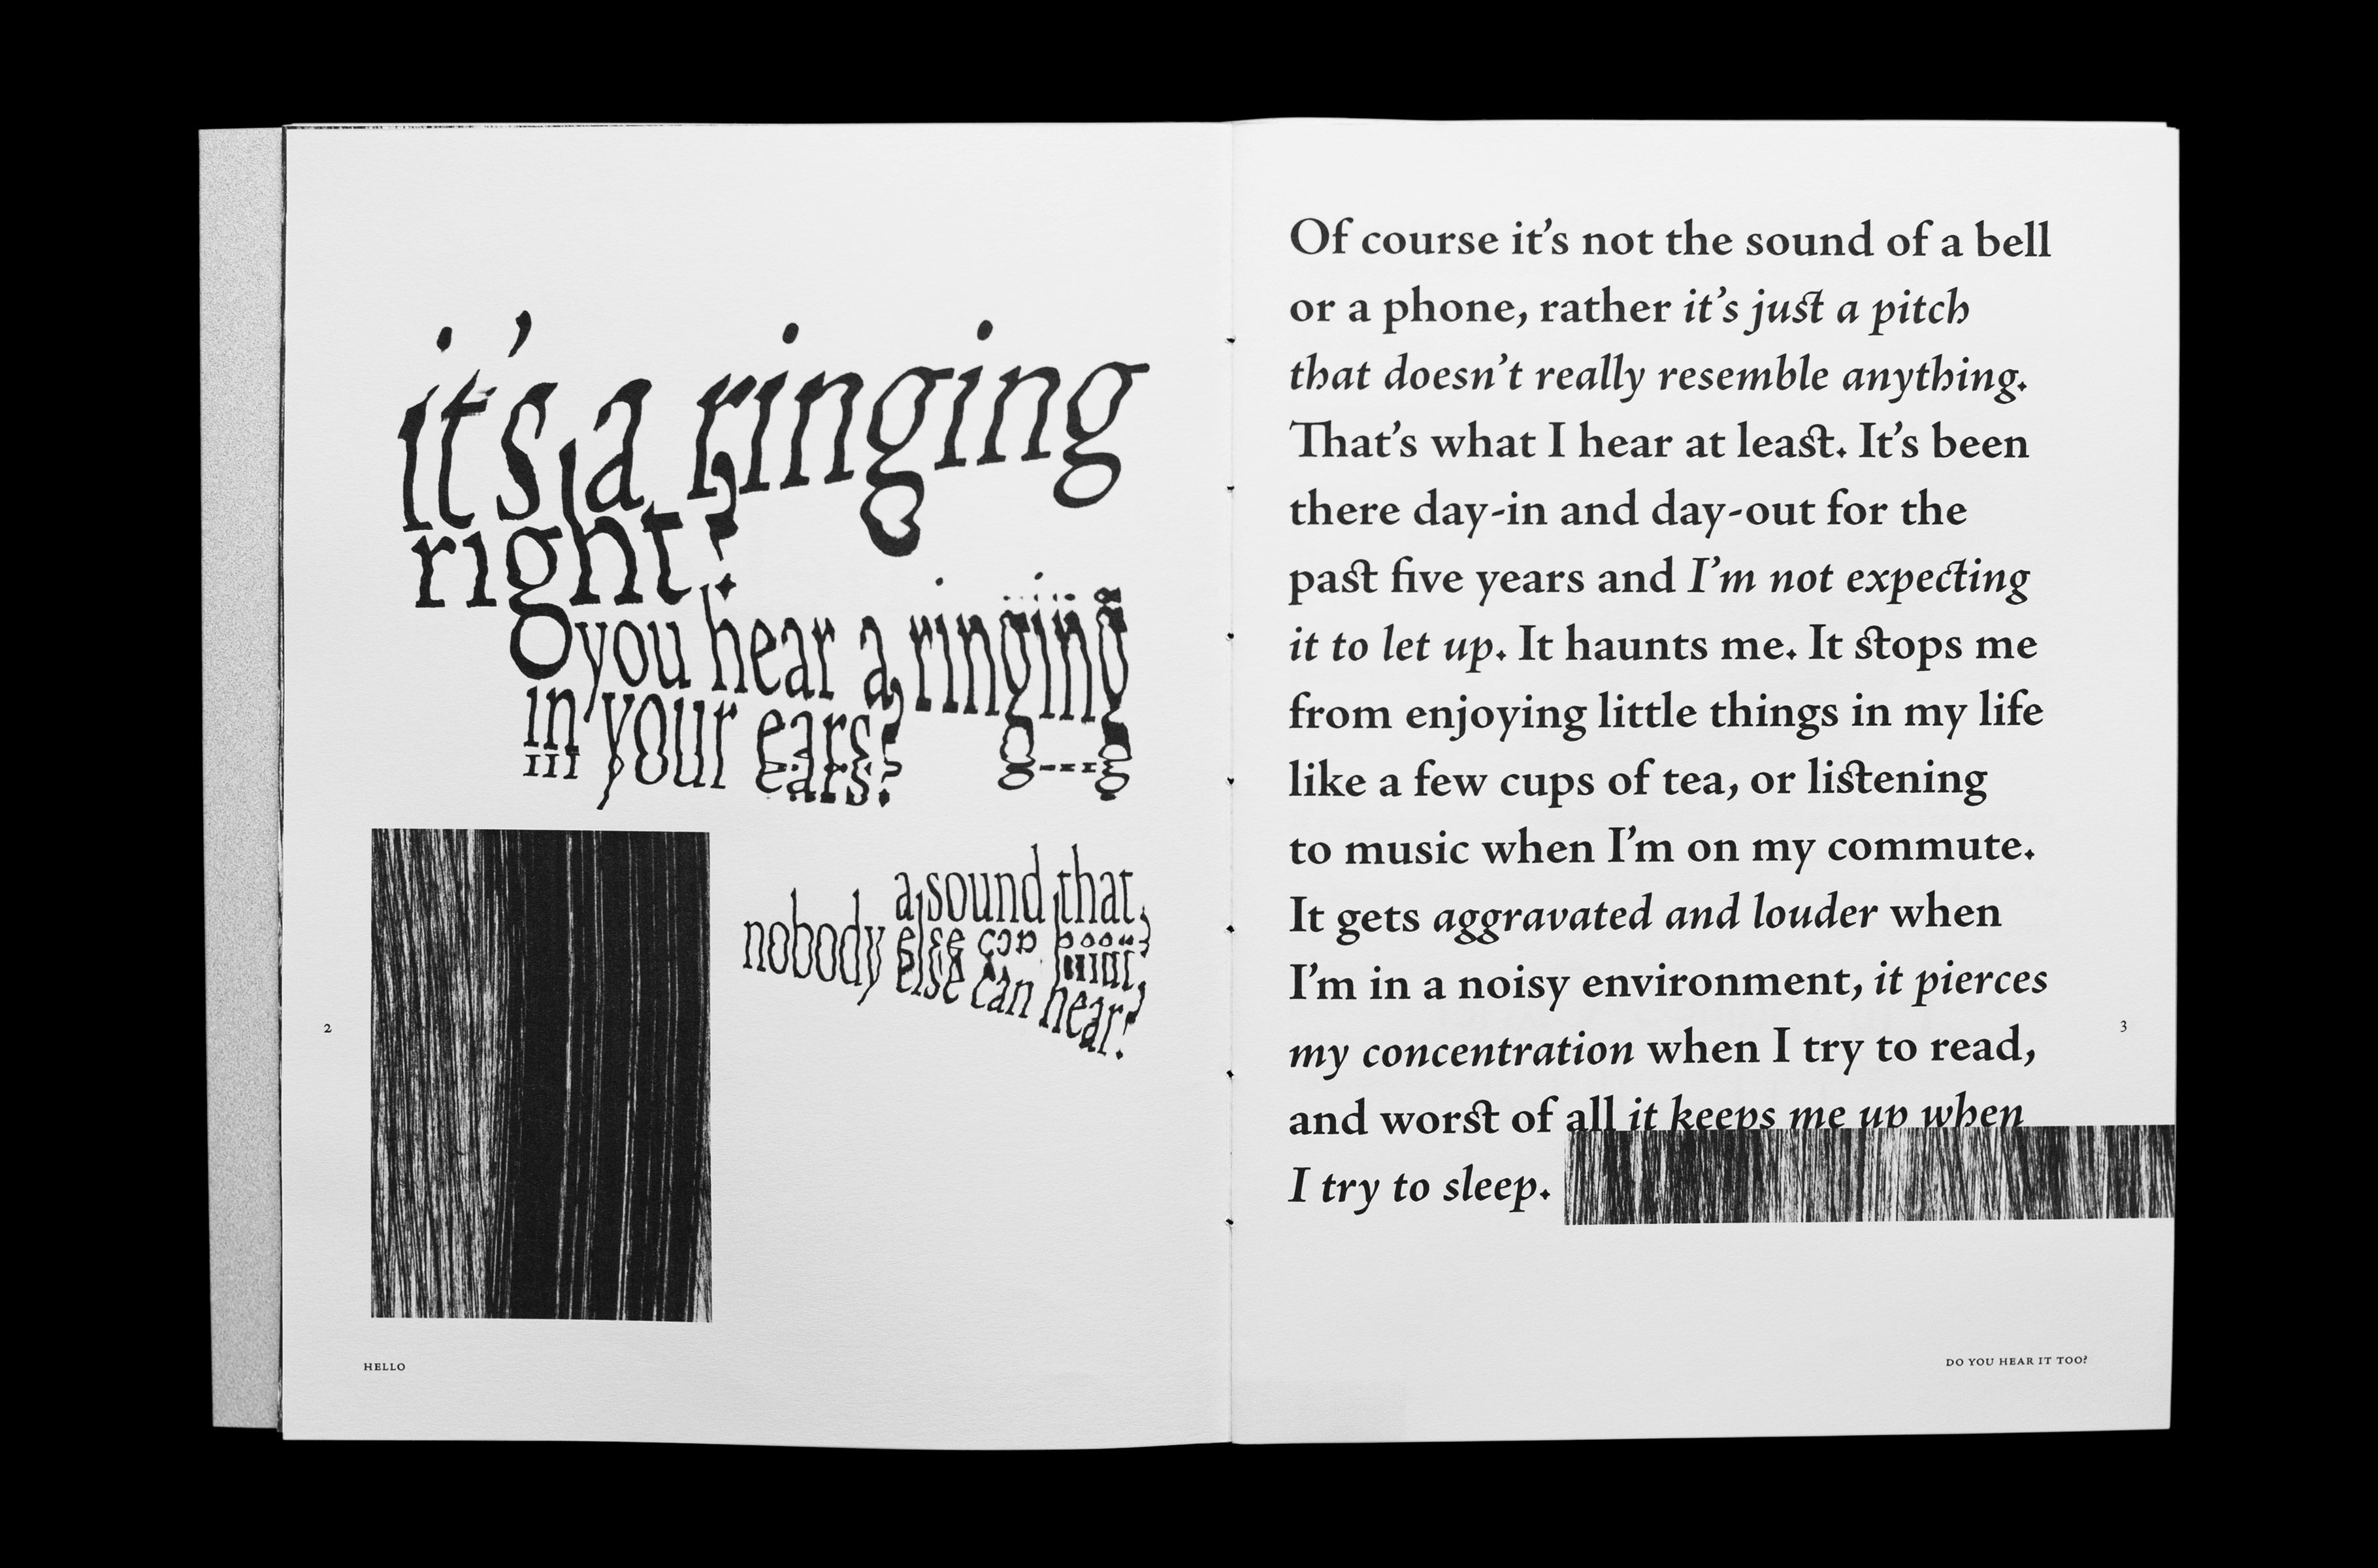 it's a ringing
right?
you hear a ringing
in your ears?
a sound that
nobody else can hear?
2
HELLO
Of course it's not the sound of a bell
or a phone, rather it's just a pitch
that doesn't really resemble anything.
That's what I hear at least. It's been
there day-in and day-out for the
past five years and I'm not expecting
it to let up. It haunts me. It stops me
from enjoying little things in my life
like a few cups of tea, or listening
to music when I'm on my commute.
It gets aggravated and louder when
I'm in a noisy environment, it pierces
my concentration when I try to read,
and worst of all it keeps me up when
I try to sleep.
3
DO YOU HEAR IT TOO?